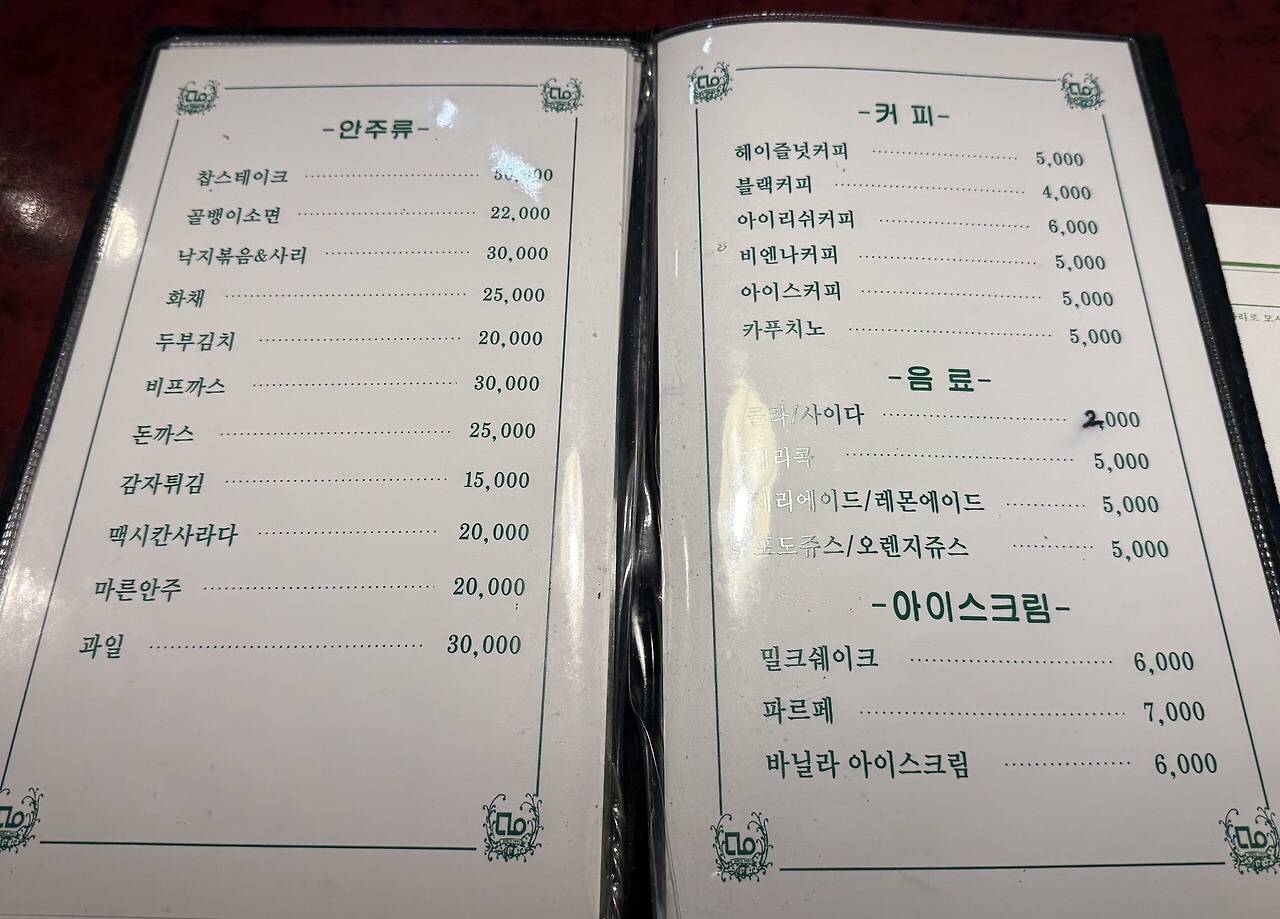 -안주류-
찹스테이크 30,000
골뱅이소면 22,000
낙지볶음&사리 30,000
화채 25,000
두부김치 20,000
비프까스 30,000
돈까스 25,000
감자튀김 15,000
맥시칸사라다 20,000
마른안주 20,000
과일 30,000
-커 피-
헤이즐넛커피 5,000
블랙커피 4,000
아이리쉬커피 6,000
비엔나커피 5,000
아이스커피 5,000
카푸치노 5,000
-음 료-
콜라/사이다 2,000
체리콕 5,000
체리에이드/레몬에이드 5,000
포도쥬스/오렌지쥬스 5,000
-아이스크림-
밀크쉐이크 6,000
파르페 7,000
바닐라 아이스크림 6,000